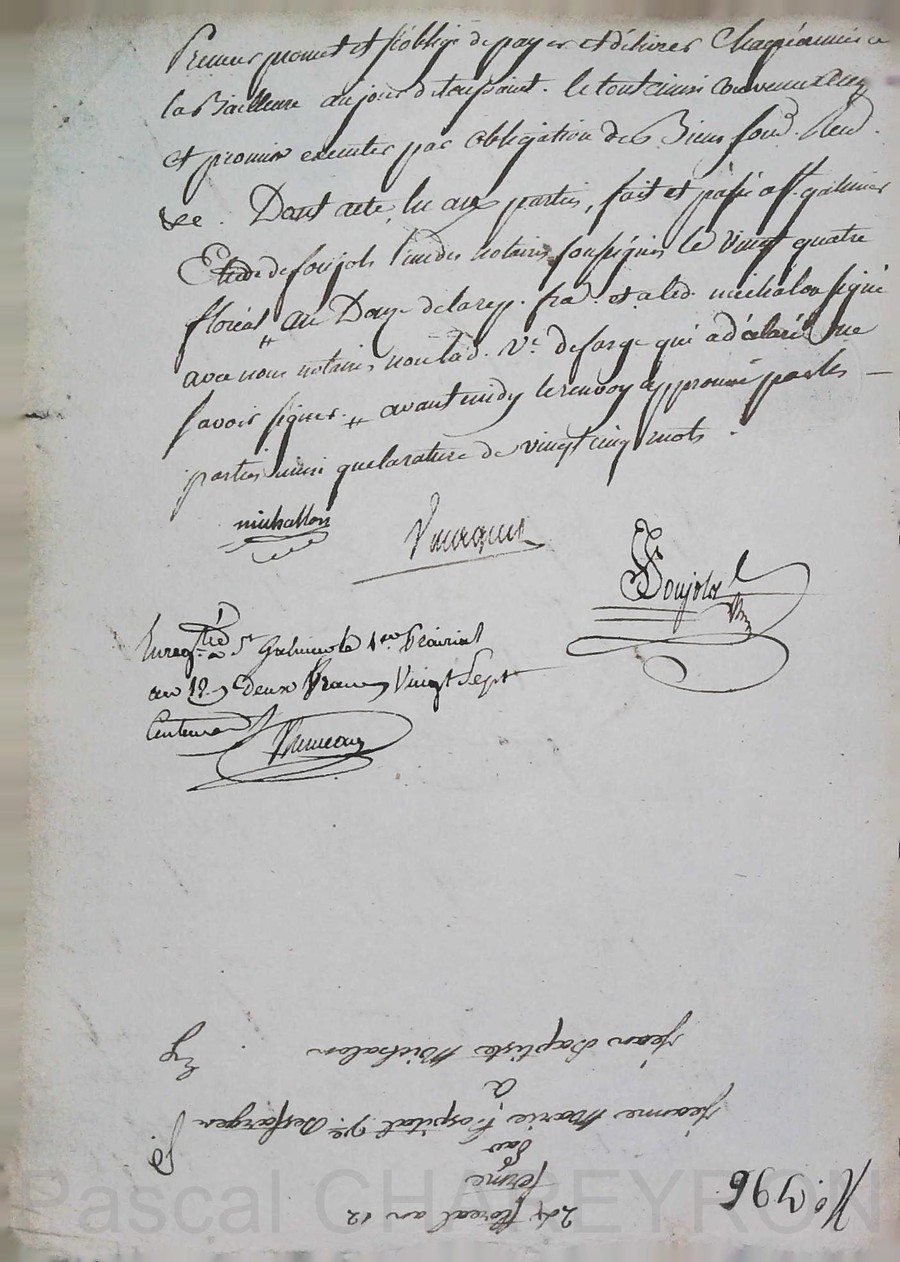 Preneur promet et s'oblige de payer et délivrer chaque année a
la Bailleure au jour de toussaint. le tout ainsi convenu accepté
et promis executer par obligation de Biens fond. Rend.
&c. Dont acte, lu aux parties, fait et passé a St. galmier
Etude de soujols l'un des notaires soussignés le Vingt quatre
floréal # an Douze de la rep. fra. et a led. michalon signé
avec nous notaires non lad. Ve. desarge qui a déclaré ne
savoir signer. # avant midy le renvoy approuvé par les
parties ainsi que la rature de vingt cinq mots.
michallon
Soujols
Enregtré a St Galmier le 1er Prairial
an 12. Deux francs Vingt Sept
Centimes
No. 396
24 floreal an 12
ferme
par
jeanne Marie hospital Ve. Desfarges
a
jean Baptiste Michalon
Pascal CHAREYRON